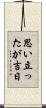 思い立っ
たが吉日